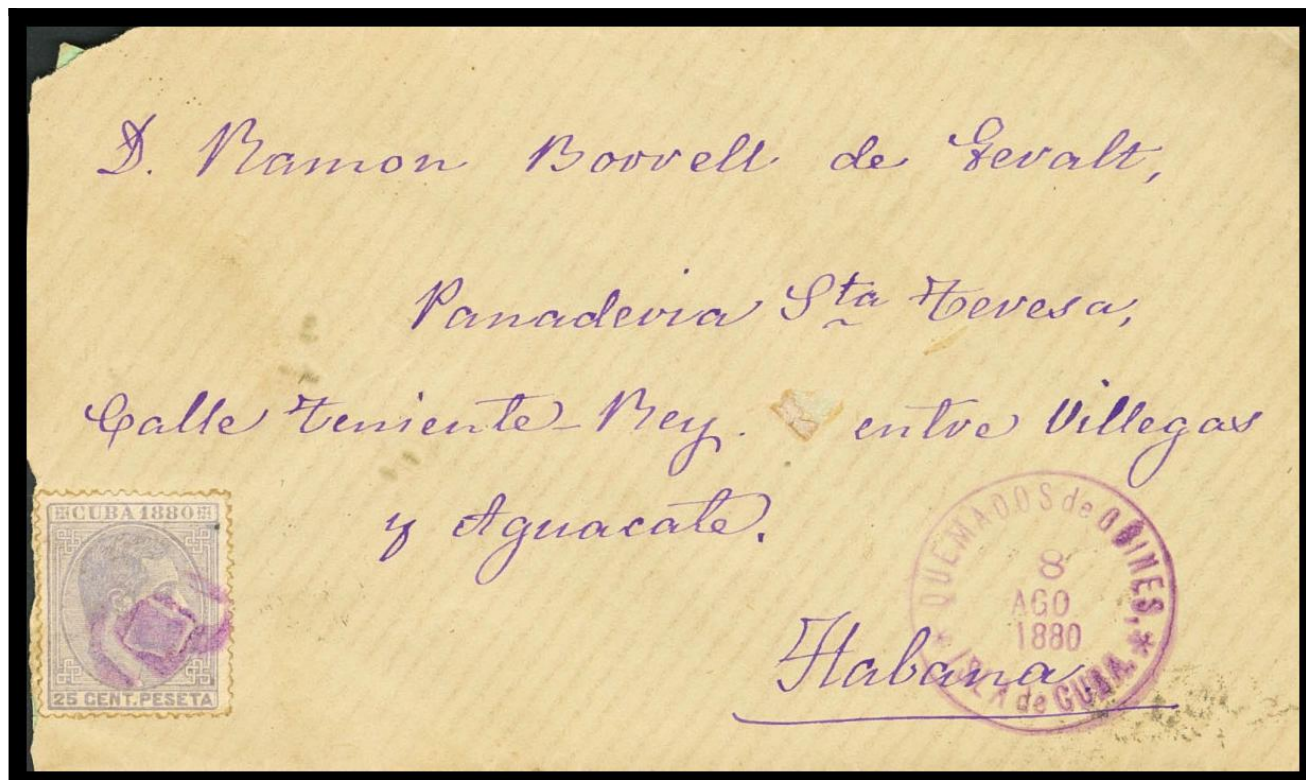 D. Ramon Borrell de Gevalt,
Panaderia Sta Teresa,
Calle Teniente-Rey. entre Villegas
y Aguacate.
Habana
CUBA 1880
25 CENT. PESETA
QUEMADOS de GÜINES,
8
AGO
1880
* ISLA de CUBA. *